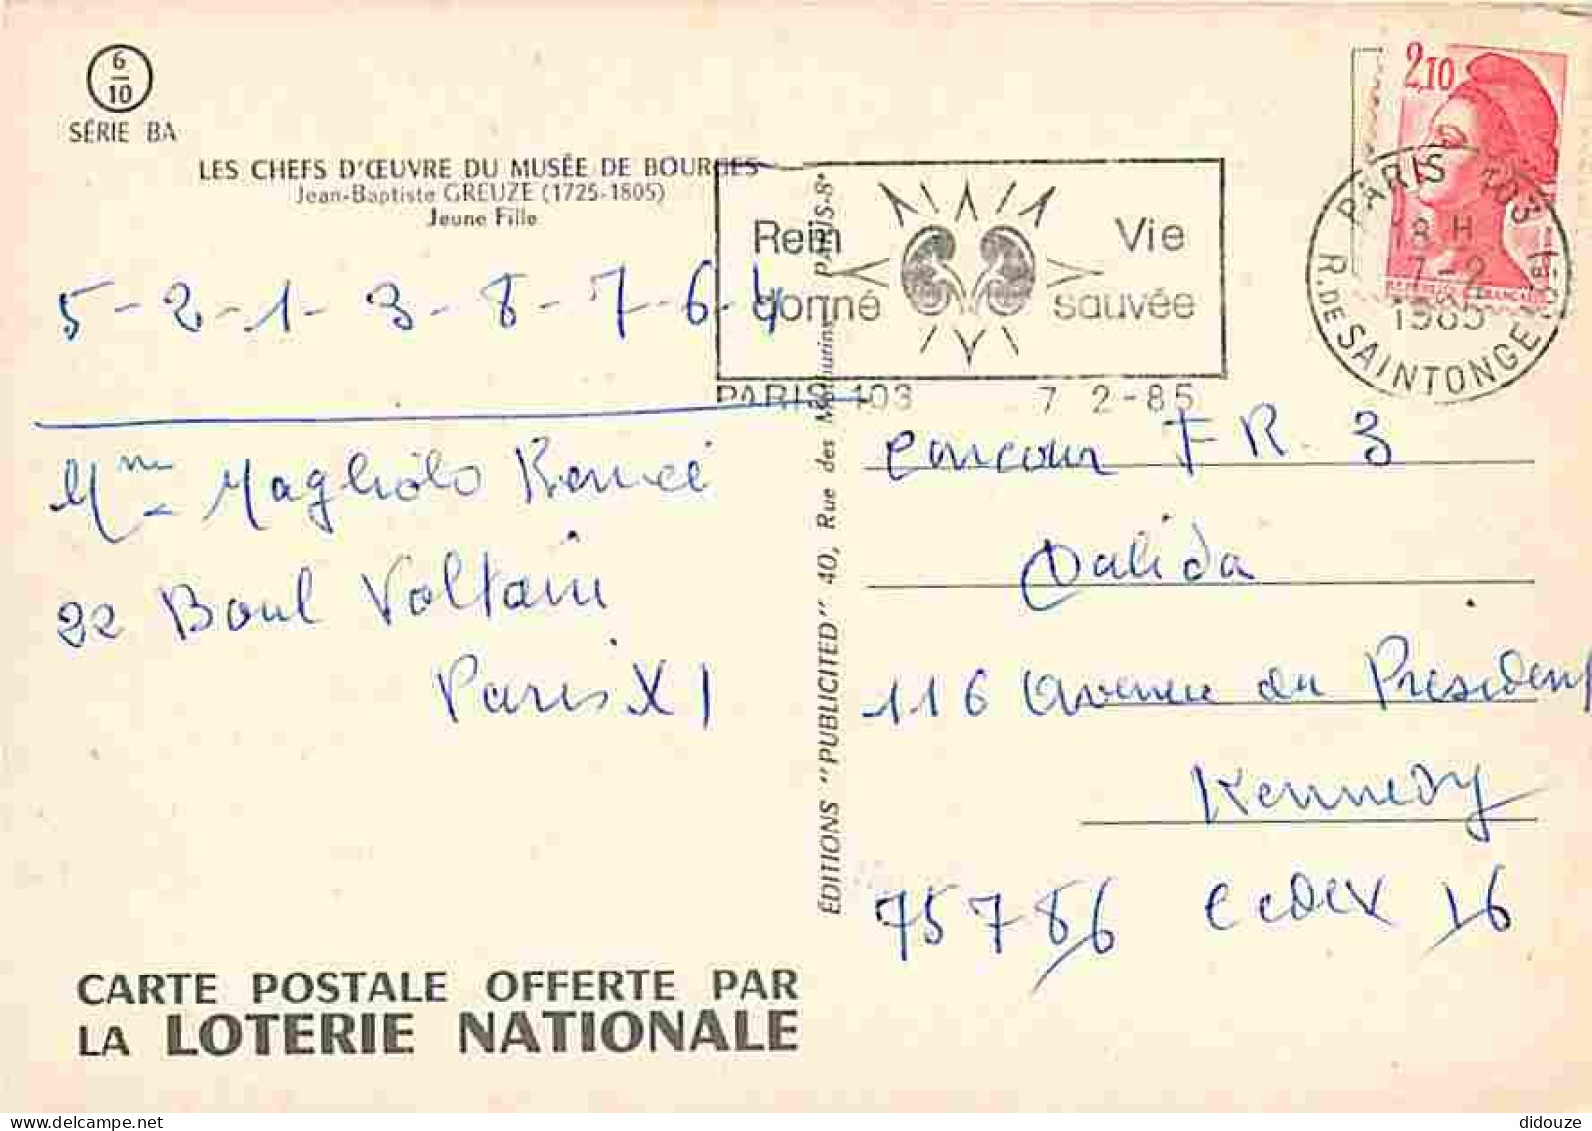 6
10
SÉRIE BA
LES CHEFS D'ŒUVRE DU MUSÉE DE BOURGES
Jean-Baptiste GREUZE (1725-1805)
Jeune Fille
5-2-1-3-8-7-6-4
Mme Magliolo
22 Boul Voltaire
Paris XI
CARTE POSTALE OFFERTE PAR
LA LOTERIE NATIONALE
ÉDITIONS "PUBLICITED" 40, Rue des Mathurins PARIS-8e
Rein Vie
donné sauvée
PARIS 103 7 2-85
2,10
PARIS 103
8 H
7-2
1985
R. DE SAINTONGE (3E)
concour FR. 3
Dalida
116 avenue du President
Kennedy
75786 cedex 16
didouze